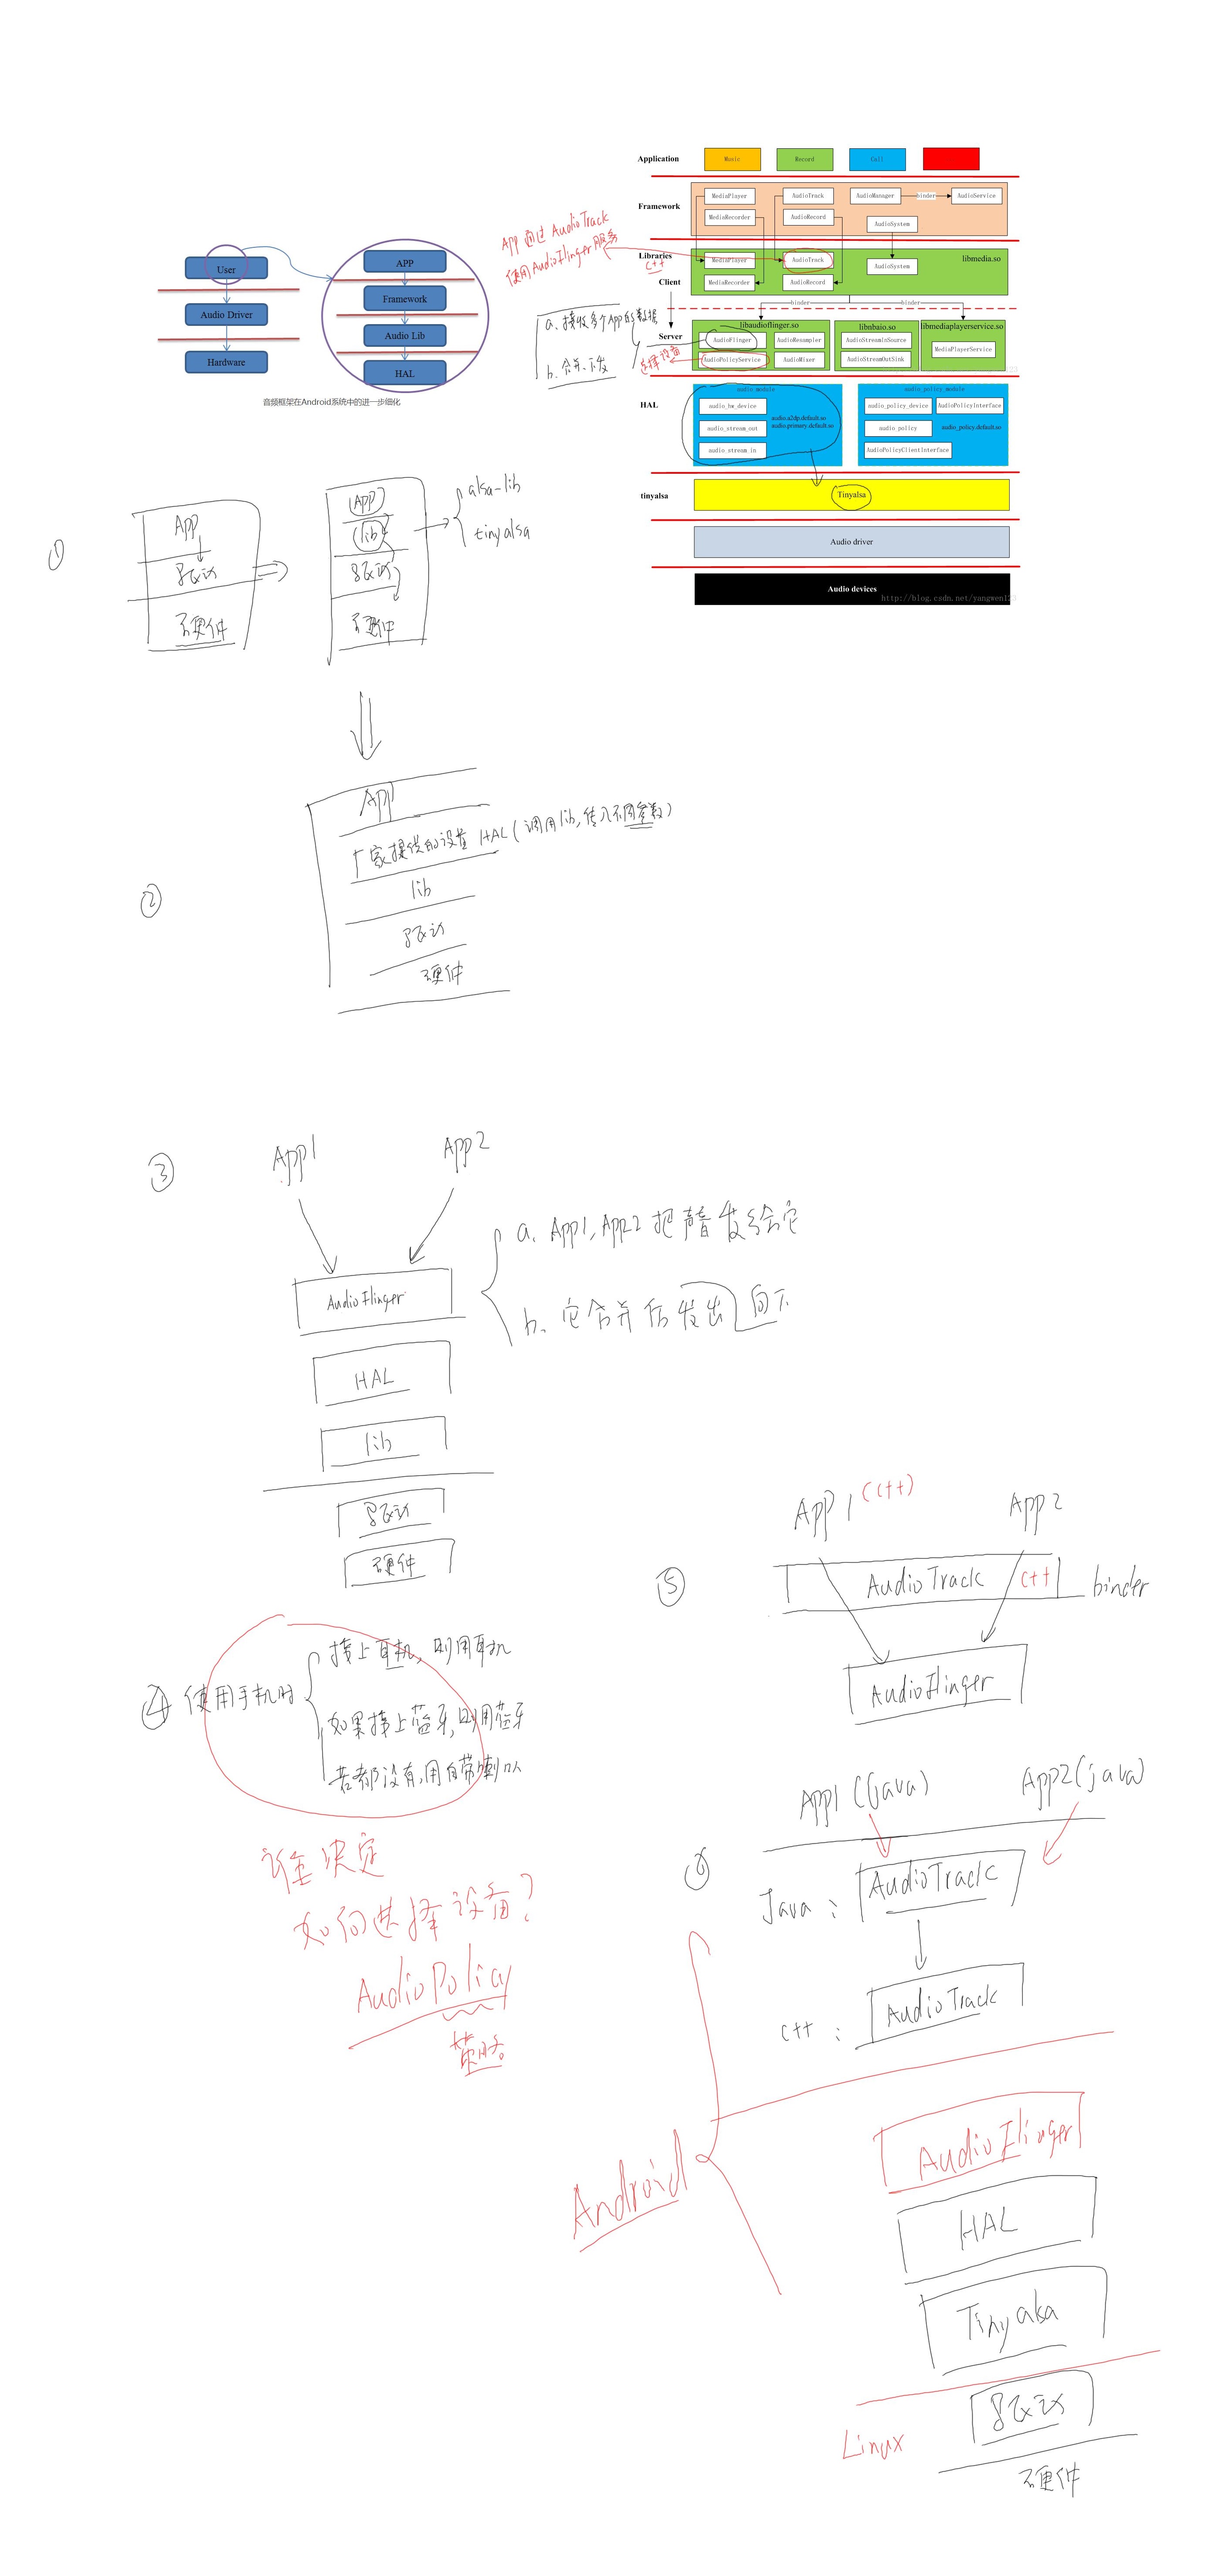 User
Audio Driver
Hardware
APP
Framework
Audio Lib
HAL
音频框架在Android系统中的进一步细化
App 通过 AudioTrack
使用AudioFlinger服务
a、接收多个App的数据
b、合并、下发
选择设备
Application
Music
Record
Call
Framework
MediaPlayer
AudioTrack
AudioManager
binder
AudioService
MediaRecorder
AudioRecord
AudioSystem
Libraries
C++
libmedia.so
MediaPlayer
AudioTrack
AudioSystem
Client
MediaRecorder
AudioRecord
binder
binder
Server
libaudioflinger.so
libnbaio.so
libmediaplayerservice.so
AudioFlinger
AudioResampler
AudioStreamInSource
MediaPlayerService
AudioPolicyService
AudioMixer
AudioStreamOutSink
HAL
audio module
audio policy module
audio_hw_device
audio_policy_device
AudioPolicyInterface
audio.a2dp.default.so
audio.primary.default.so
audio_stream_out
audio_policy
audio_policy.default.so
audio_stream_in
AudioPolicyClientInterface
tinyalsa
Tinyalsa
Audio driver
Audio devices
http://blog.csdn.net/yangwen12
①
App
驱动
硬件
App
lib
驱动
硬件
alsa-lib
tinyalsa
②
App
厂家提供的设置 HAL(调用lib,传入不同参数)
lib
驱动
硬件
③
App1
App2
AudioFlinger
HAL
lib
驱动
硬件
a、App1, App2 把声音发给它
b、它合并后发出 向下
④ 使用手机时
接上耳机, 则用耳机
如果接上蓝牙,则用蓝牙
若都没有,用自带喇叭
谁决定
如何选择设备?
AudioPolicy
策略
⑤
App1 (C++)
App2
AudioTrack C++
binder
AudioFlinger
⑥
App1 (java)
App2(java)
Java : AudioTrack
C++ : AudioTrack
Android
AudioFlinger
HAL
Tinyalsa
驱动
Linux
硬件